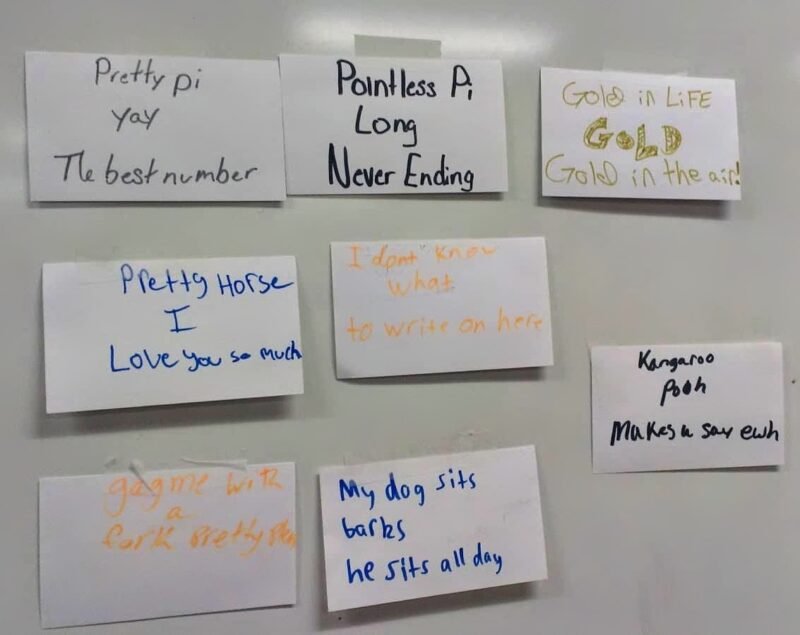 Pretty pi
yay
The best number
Pointless Pi
Long
Never Ending
Gold in LiFE
GOLD
Gold in the air!
Pretty Horse
I
Love you so much
I dont know
what
to write on here
Kangaroo
pooh
Makes u say ewh
gag me with
a
fork pretty
My dog sits
barks
he sits all day